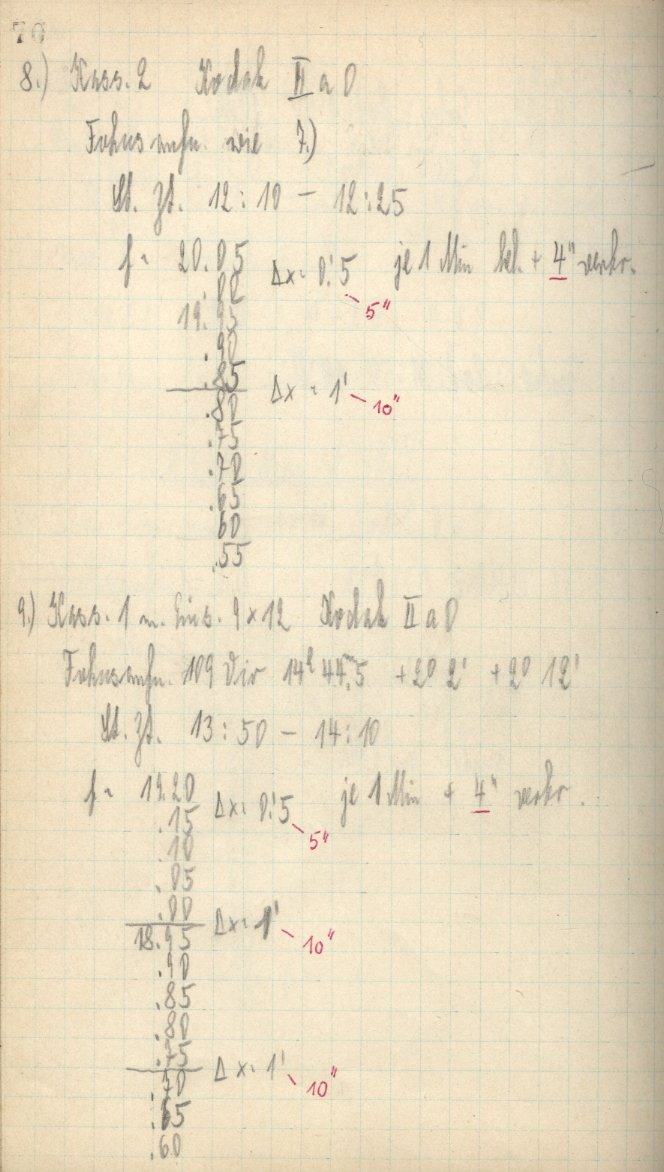 70
8.) Kass. 2 Kodak II a O
Fokusaufn. wie 7.)
St. Zt. 12:10 – 12:25
f = 20.05 Δx = 0.'5 je 1 Min bel. + 4" verkr.
.00 5"
19.95
.90
.85
.80 Δx = 1' 10"
.75
.70
.65
60
.55
9.) Kass. 1 m. Eins. 9 x 12 Kodak II a O
Fokusaufn. 109 Vir 14h 44m.5 +2° 2' +2° 12'
St. Zt. 13:50 – 14:10
f = 19.20 Δx = 0.'5 je 1 Min + 4" verkr.
.15 5"
.10
.05
.00
18.95 Δx = 1' 10"
.90
.85
.80
.75
.70 Δx = 1' 10"
.65
.60